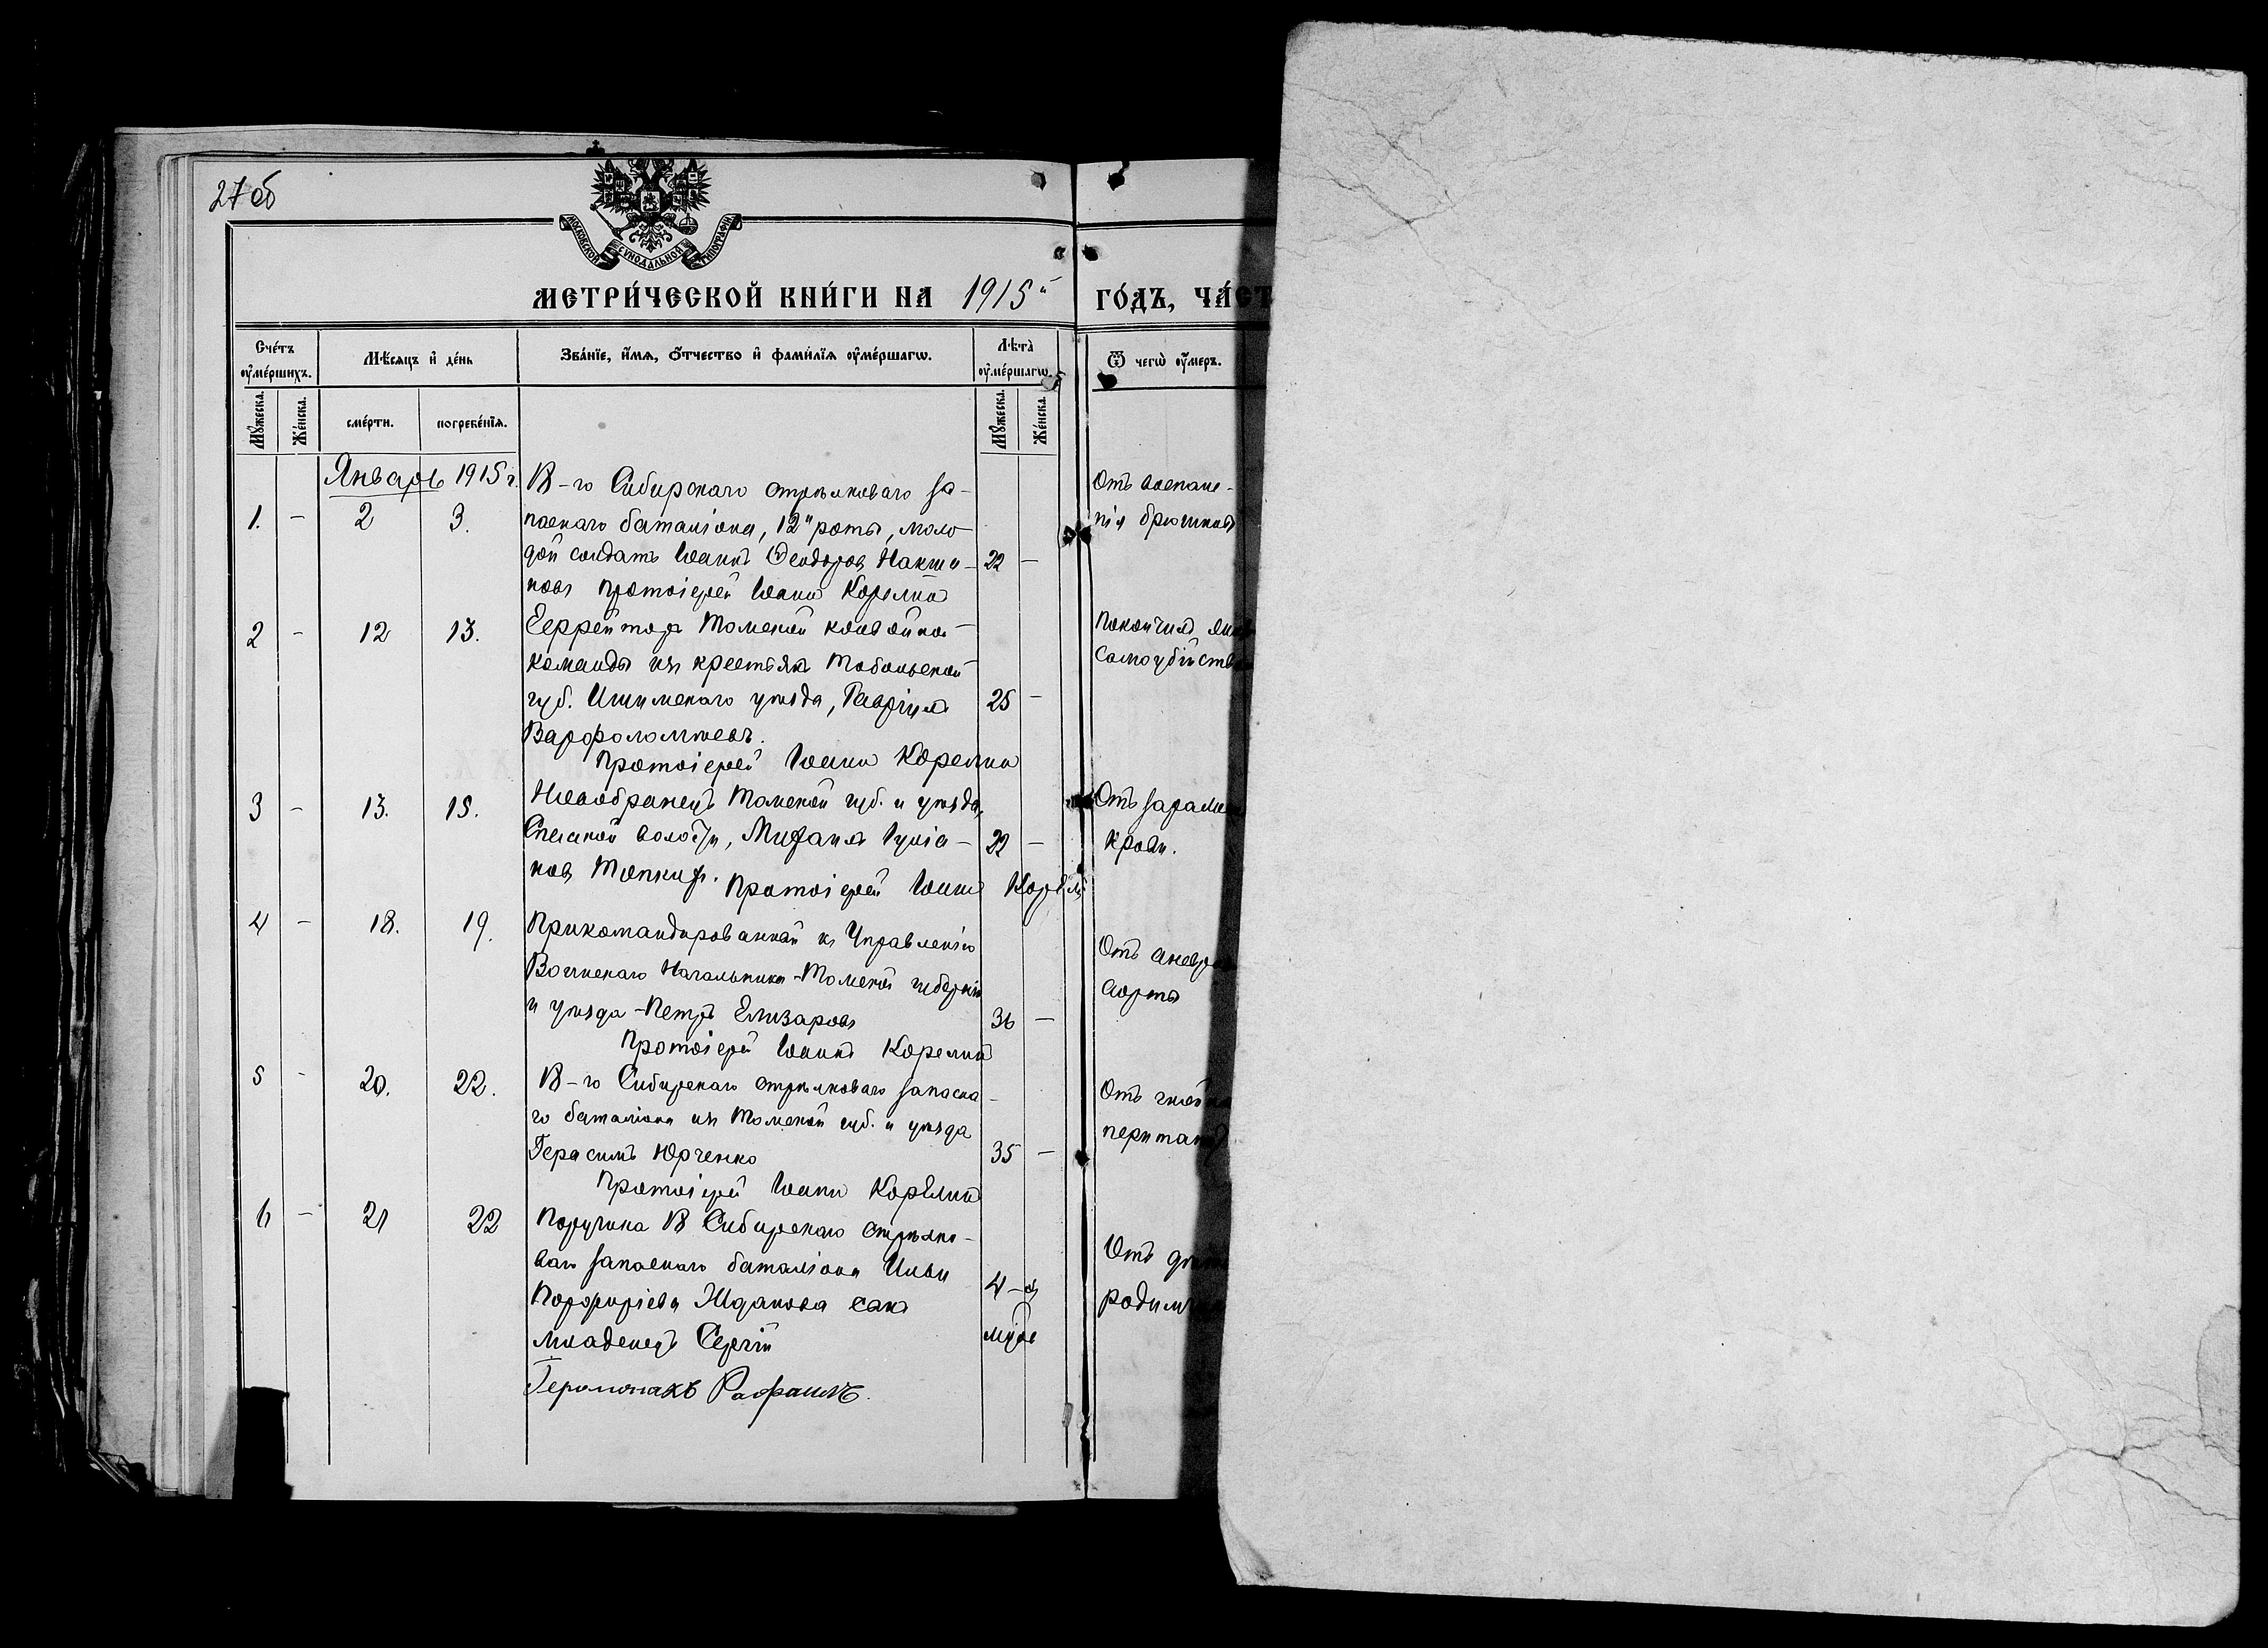 27об
МОСКОВСКОЙ СУНОДАЛЬНОЙ ТИПОГРАФIИ
МЕТРИ́ЧЕСКОЙ КНИ́ГИ НА 1915й ГО́ДЪ, ЧА́СТ
Сче́тъ ᲂу҆ме́ршихъ.
Мѣ́сяцъ и҆ де́нь
Зва́нїе, и҆́мя, ѻ҆́тчество и҆ фами́лїя ᲂу҆ме́ршагѡ.
Лѣта̀ ᲂу҆ме́ршагѡ.
Ѿ чегѡ̀ ᲂу҆́меръ.
Мꙋ́жеска.
Же́нска.
сме́рти.
погребе́нїя.
Мꙋ́жеска.
Же́нска.
Январь 1915 г.
1. - 2 3.
18-го Сибирскаго стрѣлковаго за-
паснаго баталіона, 12й роты, моло-
дой солдатъ Іоаннъ Ѳеодоровъ 22 -
новъ Протоіерей Іоаннъ Корелинъ
Отъ воспале-
нія брюшины
2 - 12 13.
Ефрейторъ Томской конвойной
команды изъ крестьянъ Тобольской
губ. Ишимскаго уѣзда, Гавріилъ 25 -
Варфоломѣевъ.
Протоіерей Іоаннъ Корелинъ
Покончилъ
самоубійств
3 - 13. 15.
Новобранецъ Томской губ. и уѣзда,
Спасской волости, Михаилъ 22 -
Протоіерей Іоаннъ Корелин
Отъ зараже
крови.
4 - 18. 19.
Прикомандированный къ Управленію
Воинскаго Начальника Томской губерніи
и уѣзда - Петръ Елизаровъ 36 -
Протоіерей Іоаннъ Корелинъ
Отъ аневр
аорты
5 - 20. 22.
18-го Сибирскаго стрѣлковаго запасна-
го баталіона изъ Томской губ. и уѣзда
Герасимъ Юрченко 35 -
Протоіерей Іоаннъ Корелинъ
Отъ гной
перитони
6 - 21 22
Поручика 18 Сибирскаго стрѣлко-
ваго запаснаго баталіона Ильи
Порфиріева Жданова сынъ 4-хъ
младенецъ Сергій
Іеромонахъ Рафаилъ.
Отъ дѣт
родимч